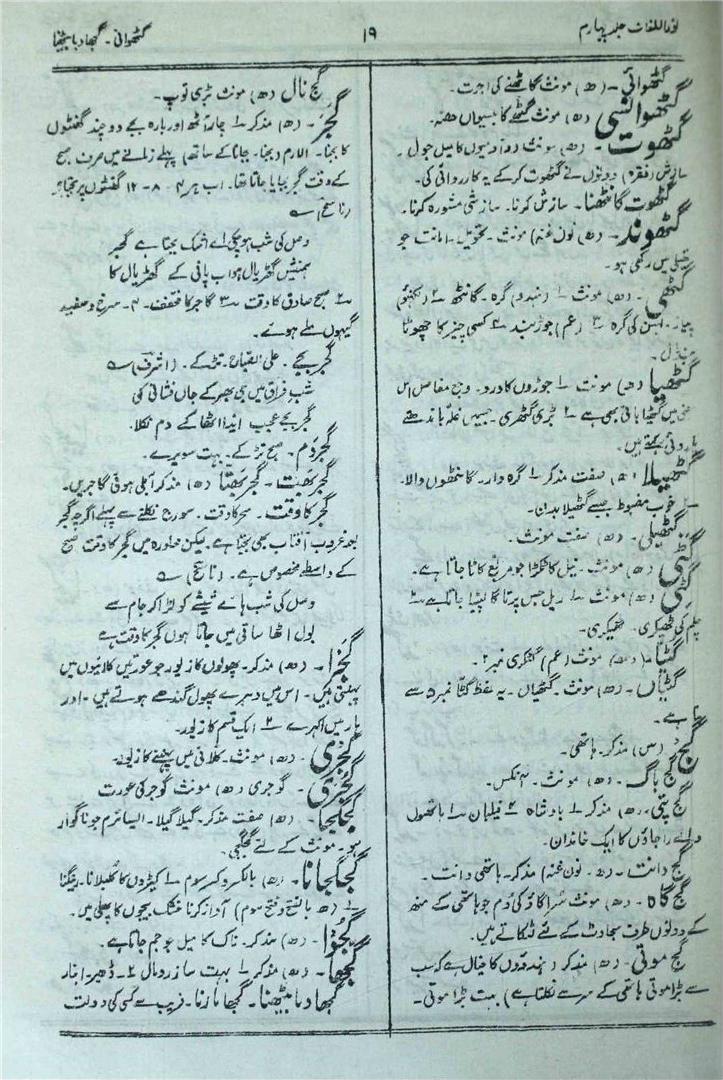 نوراللغات جلد چہارم
۱۹
گٹھوائی۔ گجھا دبا بیٹھنا
گٹھوائی۔ (ھ) مونث گانٹھنے کی اجرت۔
گٹھوانسی (ھ) مونث گٹھے کا بیسواں حصّہ۔
گٹھوت۔ (ھ) مونث دو آدمیوں کا میل جول۔
سازش (فقرہ) دونوں نے گٹھوت کرکے یہ کارروائی کی۔
گٹھوت گانٹھنا۔ سازش کرنا۔ سازشی مشورہ کرنا۔
گٹھوند۔ (ھ) نون غنہ) مونث۔ تحویل۔ امانت جو
تھیلی میں رکھی ہو۔
گٹھی۔ (ھ) مونث ۱۔ (ہندو) گرہ۔ گانٹھ ۲۔ (لکھنؤ)
پیاز۔ لہسن کی گرہ ۳۔ (عم) جوڑ بند ۴۔ کسی چیز کا چھوٹا
بنڈل۔
گٹھیا (ھ) مونث ۱۔ جوڑوں کا درد۔ وجع مفاصل اس
معنی میں گٹھیا بائی بھی ہے ۲۔ بڑی گٹھری۔ جسمیں غلہ باندھتے
یا روئی بھرتے ہیں۔
گٹھیلا (ھ) صفت مذکر ۱۔ گرہ دار۔ گانٹھوں والا۔
۲۔ خوب مضبوط جیسے گٹھیلا بدن۔
گٹھیلی۔ (ھ) صفت مونث۔
(ھ) مونث۔ نیل کا ٹکڑا جو مربع کاٹا جاتا ہے۔
گٹی (ھ) مونث ۱۔ ریل جس پر تاگا لپیٹا جاتا ہے ۲۔
چلم کی ٹھیکری۔ ٹھیکری۔
گٹیا۔ (ھ) مونث (عم) گٹکری نمبر ۲۔
گٹیاں۔ (ھ) مونث۔ گٹھیاں۔ یہ لفظ گٹّا نمبر ۵ سے
بنا ہے۔
گج (س) مذکر۔ ہاتھی۔
گج باگ۔ (ھ) مونث۔ آنکس۔
گج پتی۔ (ھ) مذکر ۱۔ بادشاہ ۲۔ فیلبان ۳۔ ہاتھیوں
والے راجاؤں کا ایک خاندان۔
گج دانت۔ (ھ۔ نون غنہ) مذکر۔ ہاتھی دانت۔
گج گاہ۔ (ھ) مونث سُرا گاؤ کی دُم جو ہاتھی کے منھ
کے دونوں طرف سجاوٹ کے لئے لٹکاتے ہیں۔
گج موتی۔ (ھ) مذکر (ہندوؤں کا خیال ہے کہ سب
سے بڑا موتی ہاتھی کے سر سے نکلتا ہے) بہت بڑا موتی۔
گج نال (ھ) مونث بڑی توپ۔
گجر۔ (ھ) مذکر ۱۔ چار آٹھ اور بارہ بجے دو چند گھنٹوں
کا بجنا۔ الارم (بجنا۔ بجانا کے ساتھ) پہلے زمانے میں صرف صبح
کے وقت گجر بجایا جاتا تھا۔ اب ہر ۴۔ ۸۔ ۱۲ گھنٹوں پر بجتا ہے
(ناسخ) ؎
وصل کی شب ہو چکی اے اشک بجتا ہے گجر
ہمنشیں گھڑیال ہو اب پانی کے گھڑیال کا
۲۔ صبح صادق کا وقت ۳۔ گاجر کا مخفف۔ ۴۔ سرخ و سفید
گیہوں ملے ہوئے۔
گجر بجے۔ علی الصباح۔ تڑکے۔ (اشرف) ؎
شب فراق میں جی بھر کے جاں فشانی کی
گجر بجے عجب ایذا اٹھا کے دم نکلا۔
گجر دم۔ صبح تڑکے۔ بہت سویرے۔
گجر بھت۔ گجر بھتّا (ھ) مذکر ابلی ہوئی گاجریں۔
گجر کا وقت۔ سحر کا وقت۔ سورج نکلنے سے پہلے اگرچہ گجر
بعد غروب آفتاب بھی بجتا ہے۔ لیکن محاورہ میں گجر کا وقت صبح
کے واسطے مخصوص ہے۔ (ناسخ) ؎
وصل کی شب ہائے شیشے کو لڑا کر جام سے
بول اٹھا ساقی میں جاتا ہوں گجر کا وقت ہے
گجرا۔ (ھ) مذکر۔ پھولوں کا زیور۔ جو عورتیں کلائیوں میں
پہنتی ہیں۔ اس میں دہرے پھول گندھے ہوتے ہیں۔ اور
ہار میں اکہرے ۲۔ ایک قسم کا زیور۔
گجری۔ (ھ) مونث۔ کلائی میں پہننے کا زیور۔
گجری۔ گوجری (ھ) مونث گوجر کی عورت
گجلجا۔ (ھ) صفت مذکر۔ گیلا گیلا۔ ایسا نرم جو ناگوار
ہو۔ مونث کے لئے گجلجی۔
گجگجانا۔ (ھ) بالکسر و کسر سوم ۱۔ کیڑوں کا کلبلانا۔ رینگنا
۲۔ (ھ بالفتح و فتح سوم) آواز کرنا خشک بیجوں کا پھلی میں۔
(ھ) مذکر۔ ناک کا میل جو جم جاتا ہے۔
گجھا۔ (ھ) مذکر ۱۔ بہت سا زر و مال ۲۔ ڈھیر۔ انبار
گجھا دبا بیٹھنا۔ گجھا مارنا۔ فریب سے کسی کی دولت